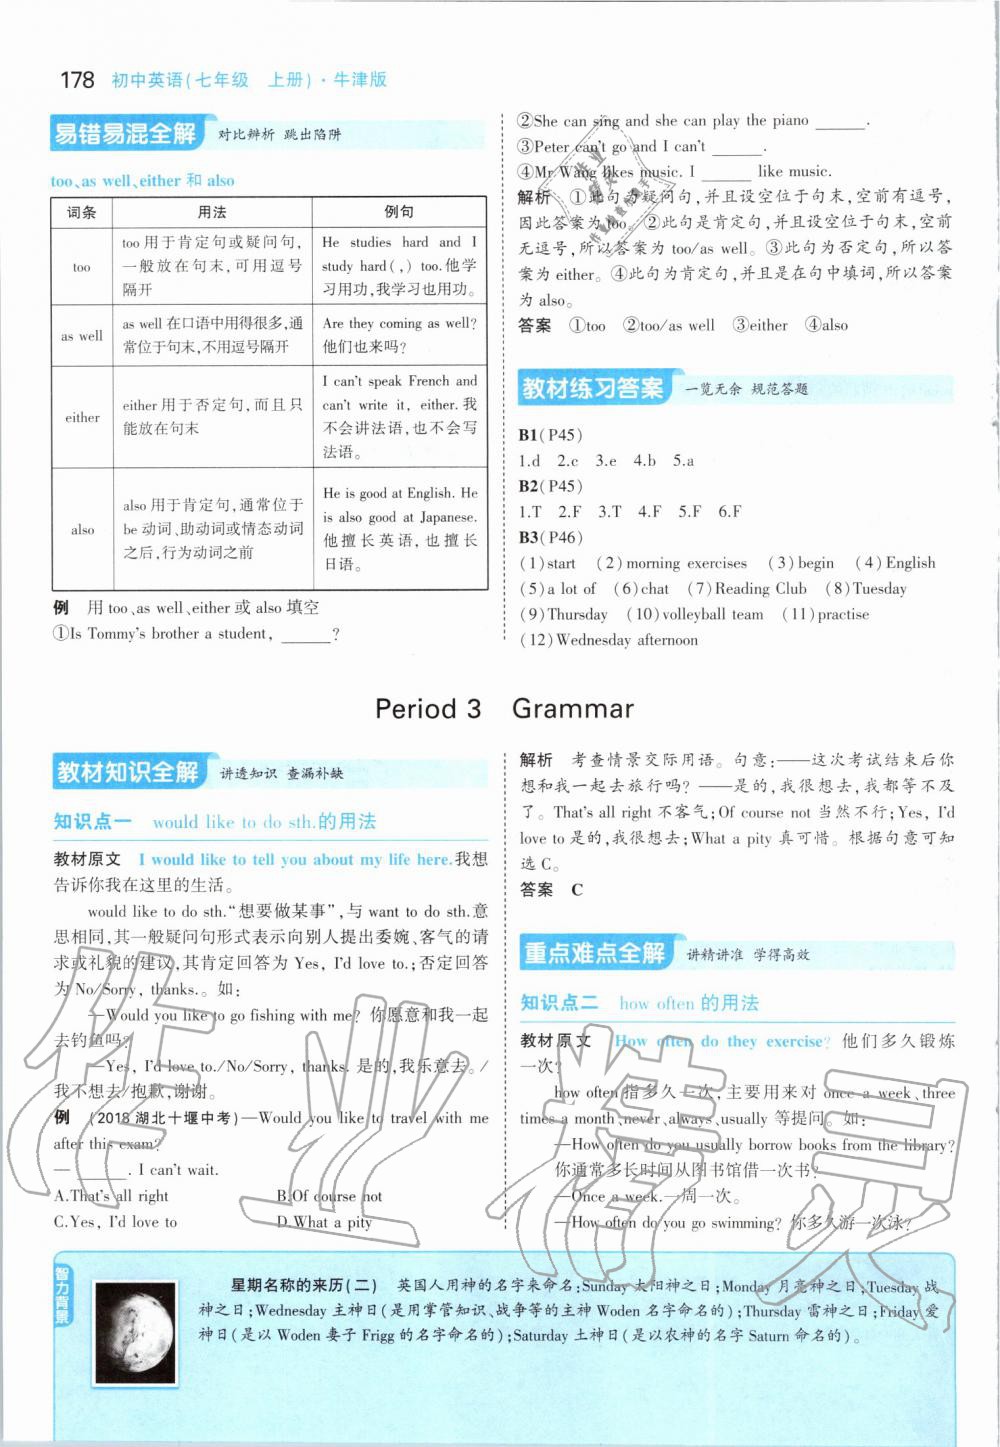 178 初中英语(七年级 上册)·牛津版
易错易混全解 对比辨析 跳出陷阱
too、as well、either 和 also
词条 用法 例句
too
too 用于肯定句或疑问句,
一般放在句末,可用逗号
隔开
He studies hard and I
study hard(,) too.他学
习用功,我学习也用功。
as well
as well 在口语中用得很多,通
常位于句末,不用逗号隔开
Are they coming as well?
他们也来吗?
either
either 用于否定句,而且只
能放在句末
I can't speak French and
can't write it, either.我
不会讲法语,也不会写
法语。
also
also 用于肯定句,通常位于
be 动词、助动词或情态动词
之后,行为动词之前
He is good at English. He
is also good at Japanese.
他擅长英语,也擅长
日语。
例 用 too、as well、either 或 also 填空
①Is Tommy's brother a student, ______?
②She can sing and she can play the piano ______.
③Peter can't go and I can't ______.
④Mr Wang likes music. I ______ like music.
解析 ①此句为疑问句,并且设空位于句末,空前有逗号,
因此答案为 too。②此句是肯定句,并且设空位于句末,空前
无逗号,所以答案为 too/as well。③此句为否定句,所以答
案为 either。④此句为肯定句,并且是在句中填词,所以答案
为 also。
答案 ①too ②too/as well ③either ④also
教材练习答案 一览无余 规范答题
B1(P45)
1.d 2.c 3.e 4.b 5.a
B2(P45)
1.T 2.F 3.T 4.F 5.F 6.F
B3(P46)
(1)start (2)morning exercises (3)begin (4)English
(5)a lot of (6)chat (7)Reading Club (8)Tuesday
(9)Thursday (10)volleyball team (11)practise
(12)Wednesday afternoon
Period 3 Grammar
教材知识全解 讲透知识 查漏补缺
知识点一 would like to do sth.的用法
教材原文 I would like to tell you about my life here.我想
告诉你我在这里的生活。
would like to do sth.“想要做某事”,与 want to do sth.意
思相同,其一般疑问句形式表示向别人提出委婉、客气的请
求或礼貌的建议,其肯定回答为 Yes, I'd love to.;否定回答
为 No/Sorry, thanks.。如:
—Would you like to go fishing with me? 你愿意和我一起
去钓鱼吗?
—Yes, I'd love to./No/Sorry, thanks. 是的,我乐意去。/
我不想去/抱歉,谢谢。
例 (2018湖北十堰中考)—Would you like to travel with me
after this exam?
—______. I can't wait.
A.That's all right B.Of course not
C.Yes, I'd love to D.What a pity
解析 考查情景交际用语。句意:——这次考试结束后你
想和我一起去旅行吗? ——是的,我很想去,我都等不及
了。That's all right 不客气;Of course not 当然不行;Yes, I'd
love to 是的,我很想去;What a pity 真可惜。根据句意可知
选 C。
答案 C
重点难点全解 讲精讲准 学得高效
知识点二 how often 的用法
教材原文 How often do they exercise? 他们多久锻炼
一次?
how often 指多久一次,主要用来对 once a week、three
times a month、never、always、usually 等提问。如:
—How often do you usually borrow books from the library?
你通常多长时间从图书馆借一次书?
—Once a week.一周一次。
—How often do you go swimming? 你多久游一次泳?
智力背景
星期名称的来历(二) 英国人用神的名字来命名;Sunday 太阳神之日;Monday 月亮神之日;Tuesday 战
神之日;Wednesday 主神日(是用掌管知识、战争等的主神 Woden 名字命名的);Thursday 雷神之日;Friday 爱
神日(是以 Woden 妻子 Frigg 的名字命名的);Saturday 土神日(是以农神的名字 Saturn 命名的)。
作业精灵